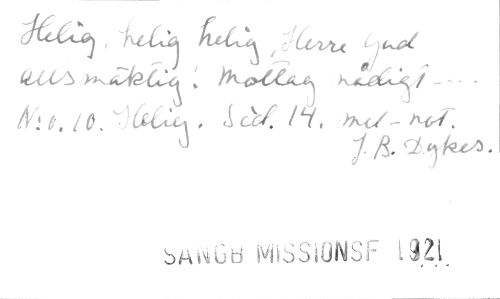 Helig, helig helig, Herre Gud
allsmäktig! Mottag nådigt ----
N:o. 10. Helig. Sid. 14. mel-not.
J. B. Dykes.
SANGB MISSIONSF 1921